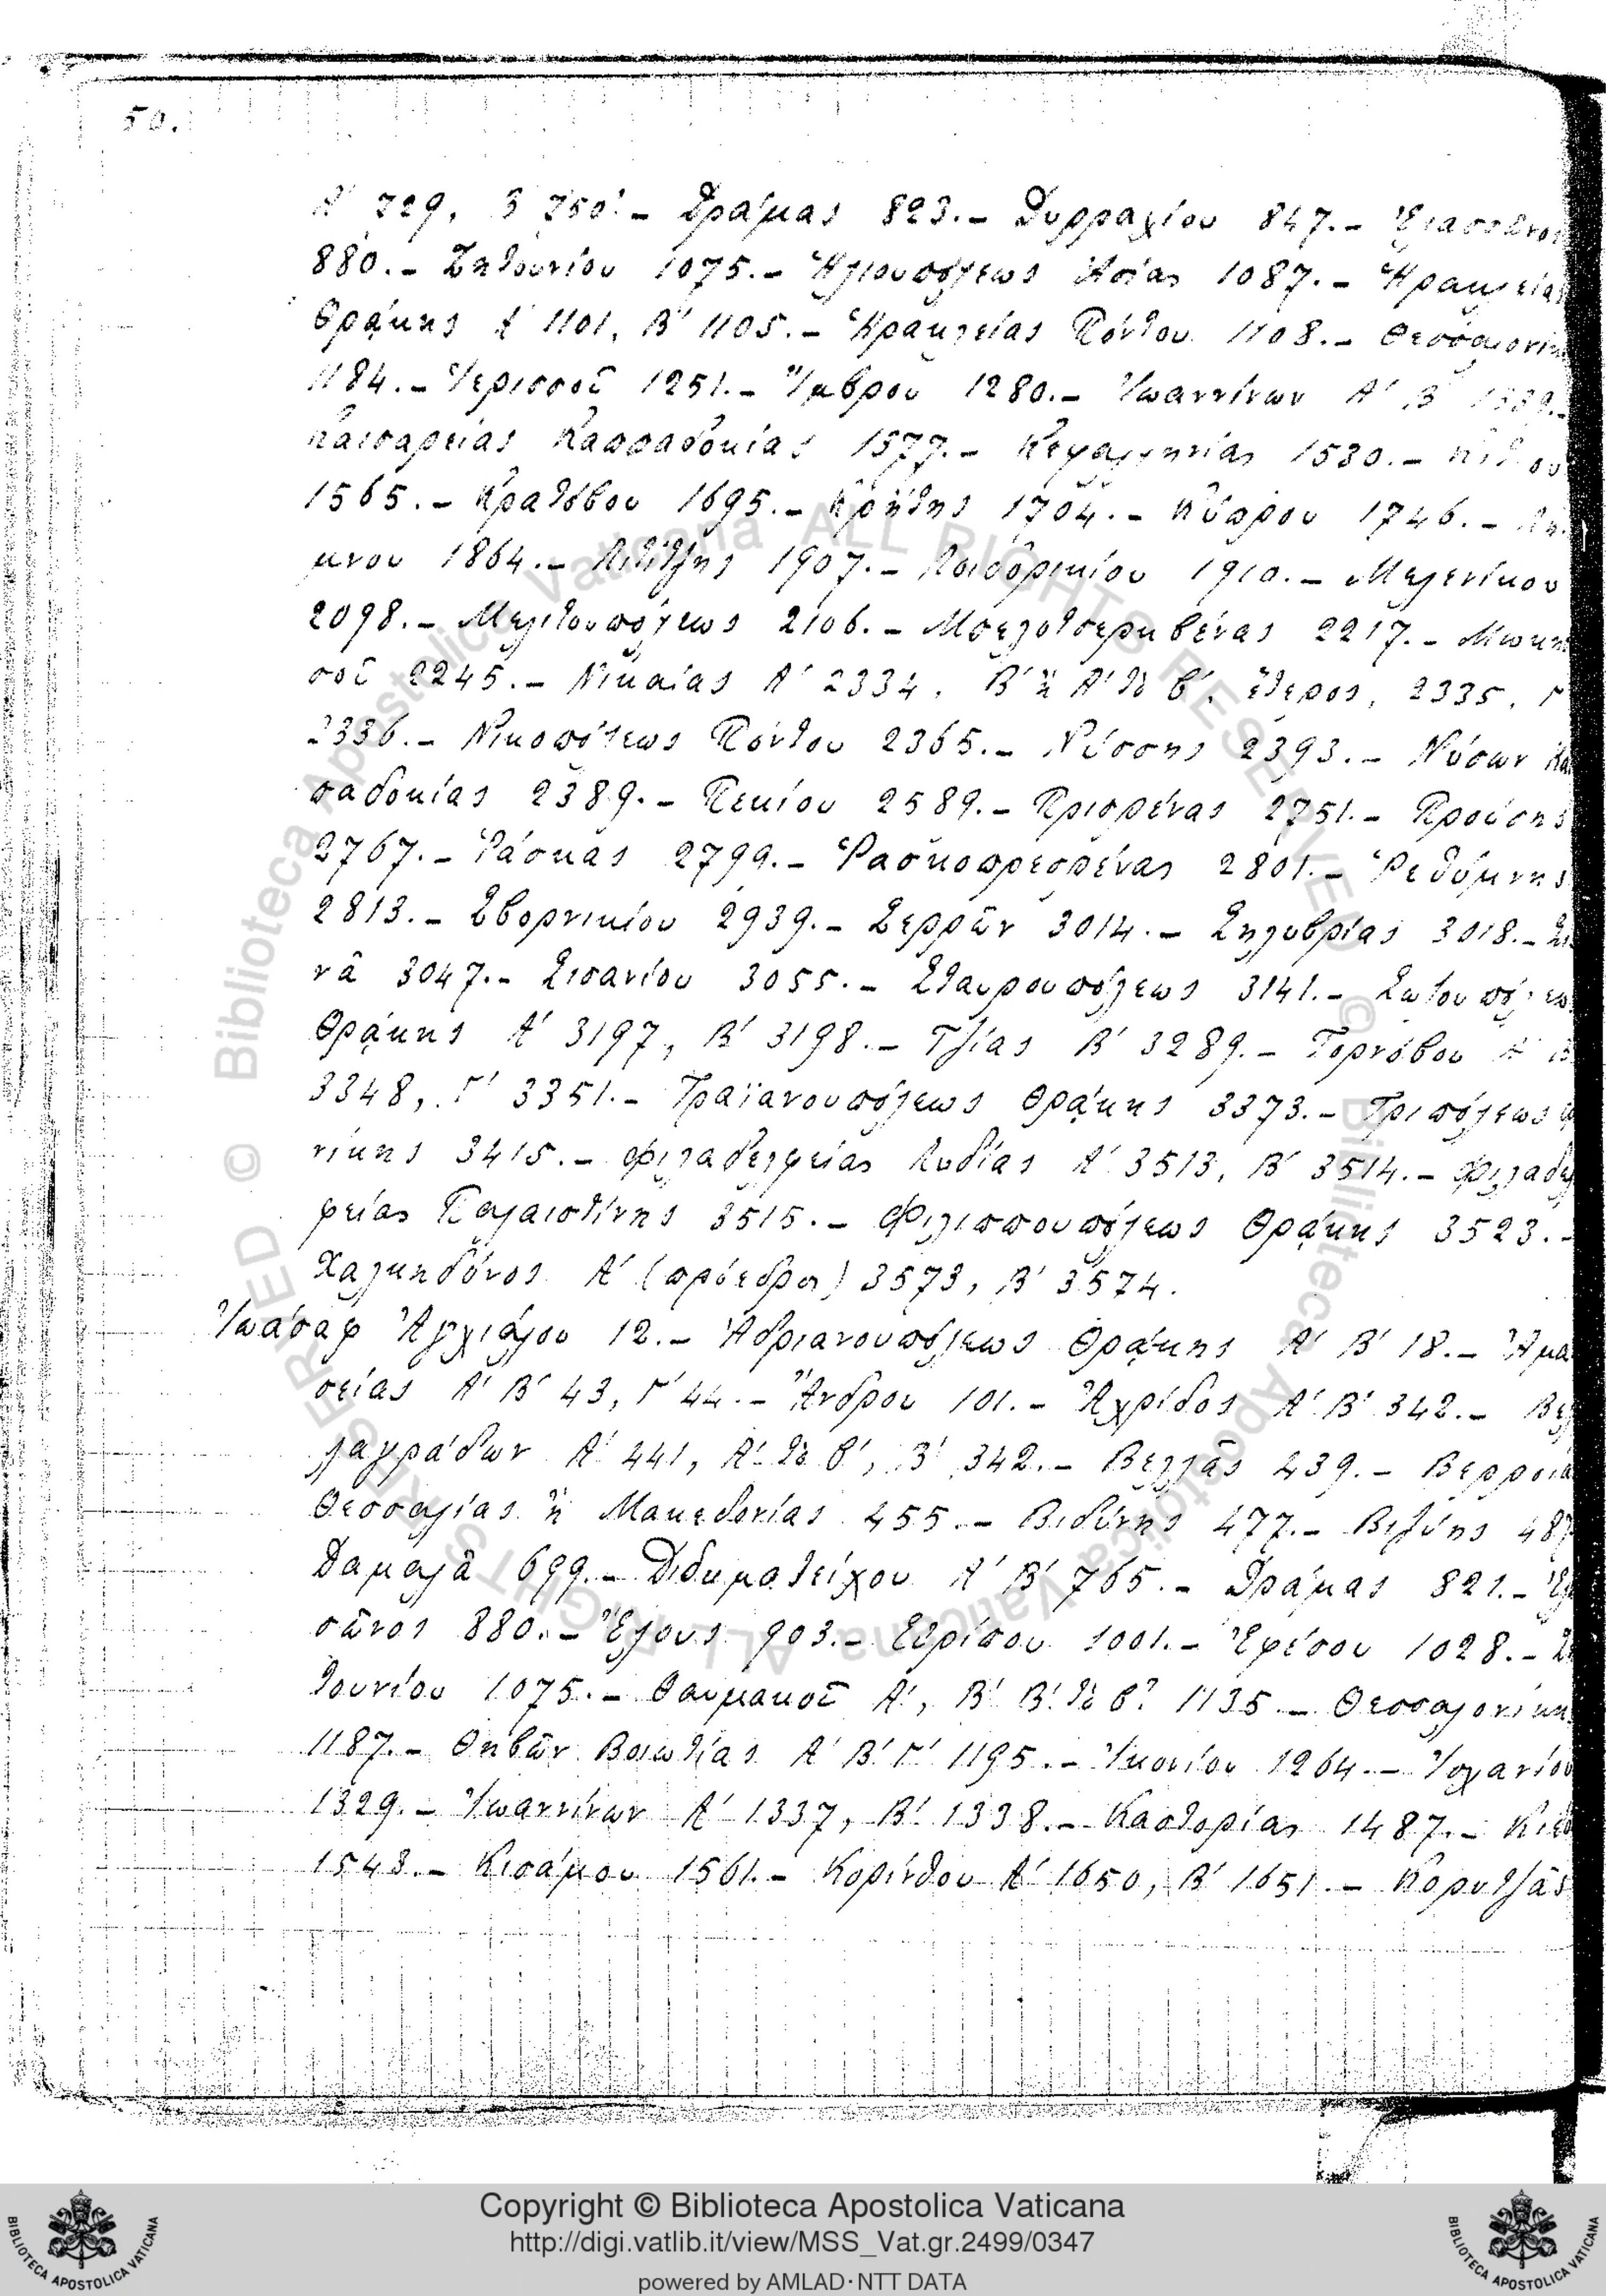 50.
Α' 729, Β' 750. – Δράμας 823. – Δυρραχίου 847. – Ἐλασσῶνος
880. – Ζητουνίου 1075. – Ἡλιουπόλεως Ἀσίας 1087. – Ἡρακλείας
Θρᾴκης Α' 1101, Β' 1105. – Ἡρακλείας Πόντου 1108. – Θεσσαλονίκ
1184. – Ἱερισσοῦ 1251. – Ἴμβρου 1280. – Ἰωαννίνων Α' Β' 1339. –
Καισαρείας Καππαδοκίας 1377. – Κεφαλληνίας 1530. – Κίτρου
1565. – Κρατόβου 1695. – Κρήτης 1704. – Κύπρου 1746. – Λή-
μνου 1864. – Λιτίτζης 1907. – Λοιδορικίου 1910. – Μελενίκου
2098. – Μελιτουπόλεως 2106. – Μπελοτσερκβένας 2217. – Μωκη
σοῦ 2245. – Νικαίας Α' 2334, Β' ἢ Α' τὸ β', ἕτερος, 2335, Γ'
2336. – Νικοπόλεως Πόντου 2365. – Νύσσης 2393. – Νύσων Κα
παδοκίας 2389. – Πεκίου 2589. – Πρισρένας 2751. – Προύσης
2767. – Ῥάσκας 2799. – Ῥασκοπρεσρένας 2801. – Ῥεθύμνης
2813. – Σβορνικίου 2939. – Σερρῶν 3014. – Σηλυβρίας 3018. – Σι
νᾶ 3047. – Σισανίου 3055. – Σταυρουπόλεως 3141. – Σωζουπόλεω
Θρᾴκης Α' 3197, Β' 3198. – Τζίας Β' 3289. – Τορνόβου Α' Β'
3348, Γ' 3351. – Τραϊανουπόλεως Θρᾴκης 3373. – Τριπόλεως Φ
νίκης 3415. – Φιλαδελφείας Λυδίας Α' 3513, Β' 3514. – Φιλαδελ
φείας Παλαιστίνης 3515. – Φιλιππουπόλεως Θρᾴκης 3523. –
Χαλκηδόνος Α' (πρόεδρος) 3573, Β' 3574.
Ἰωάσαφ Ἀγχιάλου 12. – Ἀδριανουπόλεως Θρᾴκης Α' Β' 18. – Ἀμα
σείας Α' Β' 43, Γ' 44. – Ἄνδρου 101. – Ἀχρίδος Α' Β' 342. – Βε
λαγράδων Α' 441, Α' τὸ β', Β' 342. – Βελλᾶς 439. – Βερροία
Θεσσαλίας ἢ Μακεδονίας 455. – Βιδύνης 477. – Βιζύης 487
Δαμαλᾶ 699. – Διδυμοτείχου Α' Β' 765. – Δράμας 821. – Ἐλ
σῶνος 880. – Ἕλους 903. – Εὐρίπου 1001. – Ἐφέσου 1028. – Ζ
τουνίου 1075. – Θαυμακοῦ Α', Β' Β' τὸ β' 1135. – Θεσσαλονίκη
1187. – Θηβῶν Βοιωτίας Α' Β' Γ' 1195. – Ἰκονίου 1264. – Ἰσχανίου
1329. – Ἰωαννίνων Α' 1337, Β' 1338. – Καστορίας 1487. – Κιέβ
1543. – Κισάμου 1561. – Κορίνθου Α' 1650, Β' 1651. – Κορυτζᾶς
Copyright © Biblioteca Apostolica Vaticana
http://digi.vatlib.it/view/MSS_Vat.gr.2499/0347
powered by AMLAD·NTT DATA